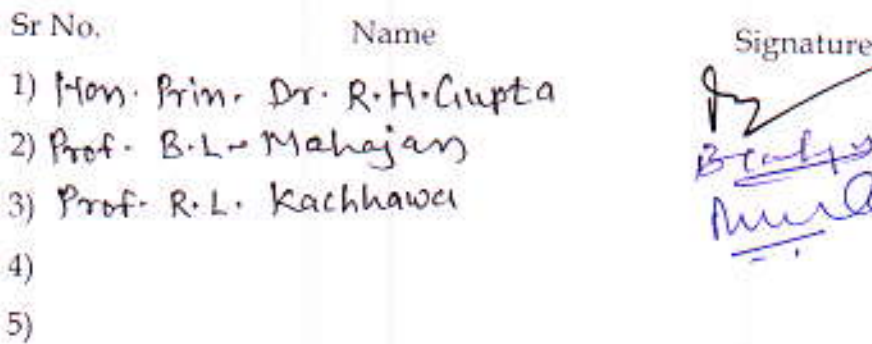 Sr No. Name Signature
1) Hon. Prin. Dr. R.H. Gupta
2) Prof. B.L. Mahajan
3) Prof. R.L. Kachhawa
4)
5)